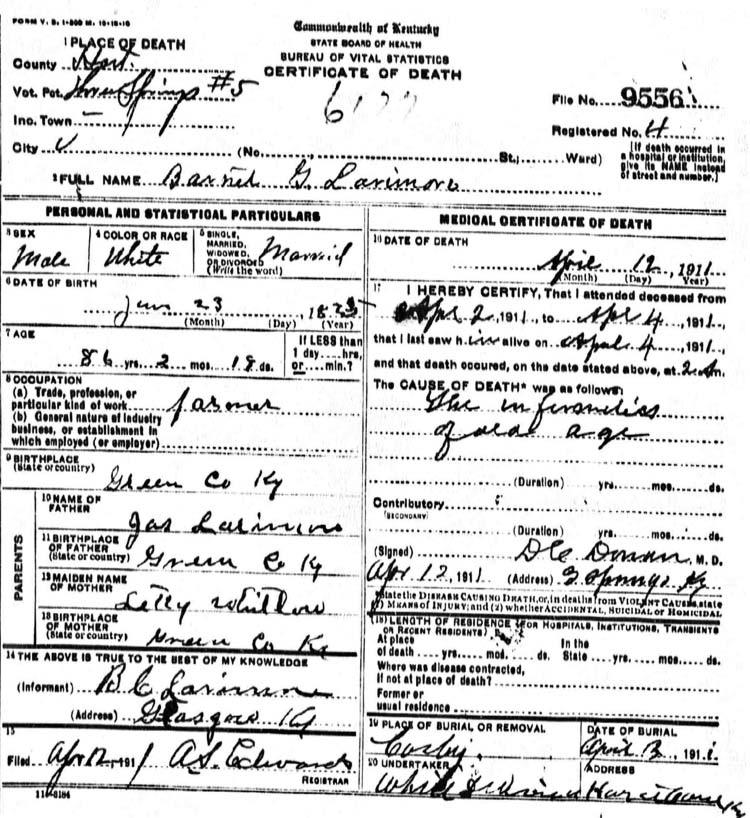 FORM V. S. 1-500 M. 10-18-10
Commonwealth of Kentucky
STATE BOARD OF HEALTH
BUREAU OF VITAL STATISTICS
CERTIFICATE OF DEATH
1 PLACE OF DEATH
County Hart
Vot. Pct. Three Springs #5
Inc. Town -
City (No. St.; Ward)
File No. 9556
Registered No. 4
[If death occurred in a hospital or institution, give its NAME instead of street and number.]
2 FULL NAME G. Larimore
PERSONAL AND STATISTICAL PARTICULARS
3 SEX
Male
4 COLOR OR RACE
White
5 SINGLE, MARRIED, WIDOWED, OR DIVORCED (Write the word)
Married
6 DATE OF BIRTH
Jan 23
(Month) (Day) (Year)
7 AGE
86 yrs. 2 mos. 18 ds.
If LESS than 1 day....hrs. or....min.?
8 OCCUPATION
(a) Trade, profession, or particular kind of work farmer
(b) General nature of industry business, or establishment in which employed (or employer)
9 BIRTHPLACE
(State or country)
Green Co Ky
PARENTS
10 NAME OF FATHER
Jas Larimore
11 BIRTHPLACE OF FATHER (State or country)
Green Co Ky
12 MAIDEN NAME OF MOTHER
Letty Whitlow
13 BIRTHPLACE OF MOTHER (State or country)
Green Co Ky
14 THE ABOVE IS TRUE TO THE BEST OF MY KNOWLEDGE
(Informant) B C Larimore
(Address) Glasgow Ky
15
Filed Apr 12, 1911 A.S. Edwards
REGISTRAR
11-6184
MEDICAL CERTIFICATE OF DEATH
16 DATE OF DEATH
April 12, 1911
(Month) (Day) (Year)
17 I HEREBY CERTIFY, That I attended deceased from
Apr 2, 1911, to Apr 4, 1911,
that I last saw him alive on April 4, 1911,
and that death occured, on the date stated above, at
The CAUSE OF DEATH* was as follows:
The infirmities
of old age
(Duration) yrs. mos. ds.
Contributory
(SECONDARY)
(Duration) yrs. mos. ds.
(Signed) M. D.
Apr 12, 1911 (Address) 3 Springs Ky
*State the DISEASE CAUSING DEATH, or, in deaths from VIOLENT CAUSES, state (1) MEANS OF INJURY; and (2) whether ACCIDENTAL, SUICIDAL or HOMICIDAL
(18) LENGTH OF RESIDENCE (FOR HOSPITALS, INSTITUTIONS, TRANSIENTS OR RECENT RESIDENTS)
At place of death yrs. mos. ds. In the State yrs. mos. ds.
Where was disease contracted, if not at place of death?
Former or usual residence
19 PLACE OF BURIAL OR REMOVAL
DATE OF BURIAL
April 13, 1911
20 UNDERTAKER
ADDRESS